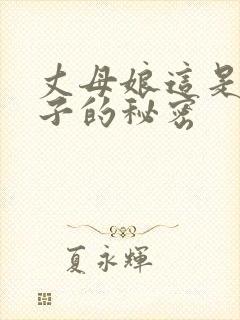 丈母娘這是
子的秘密
夏永輝